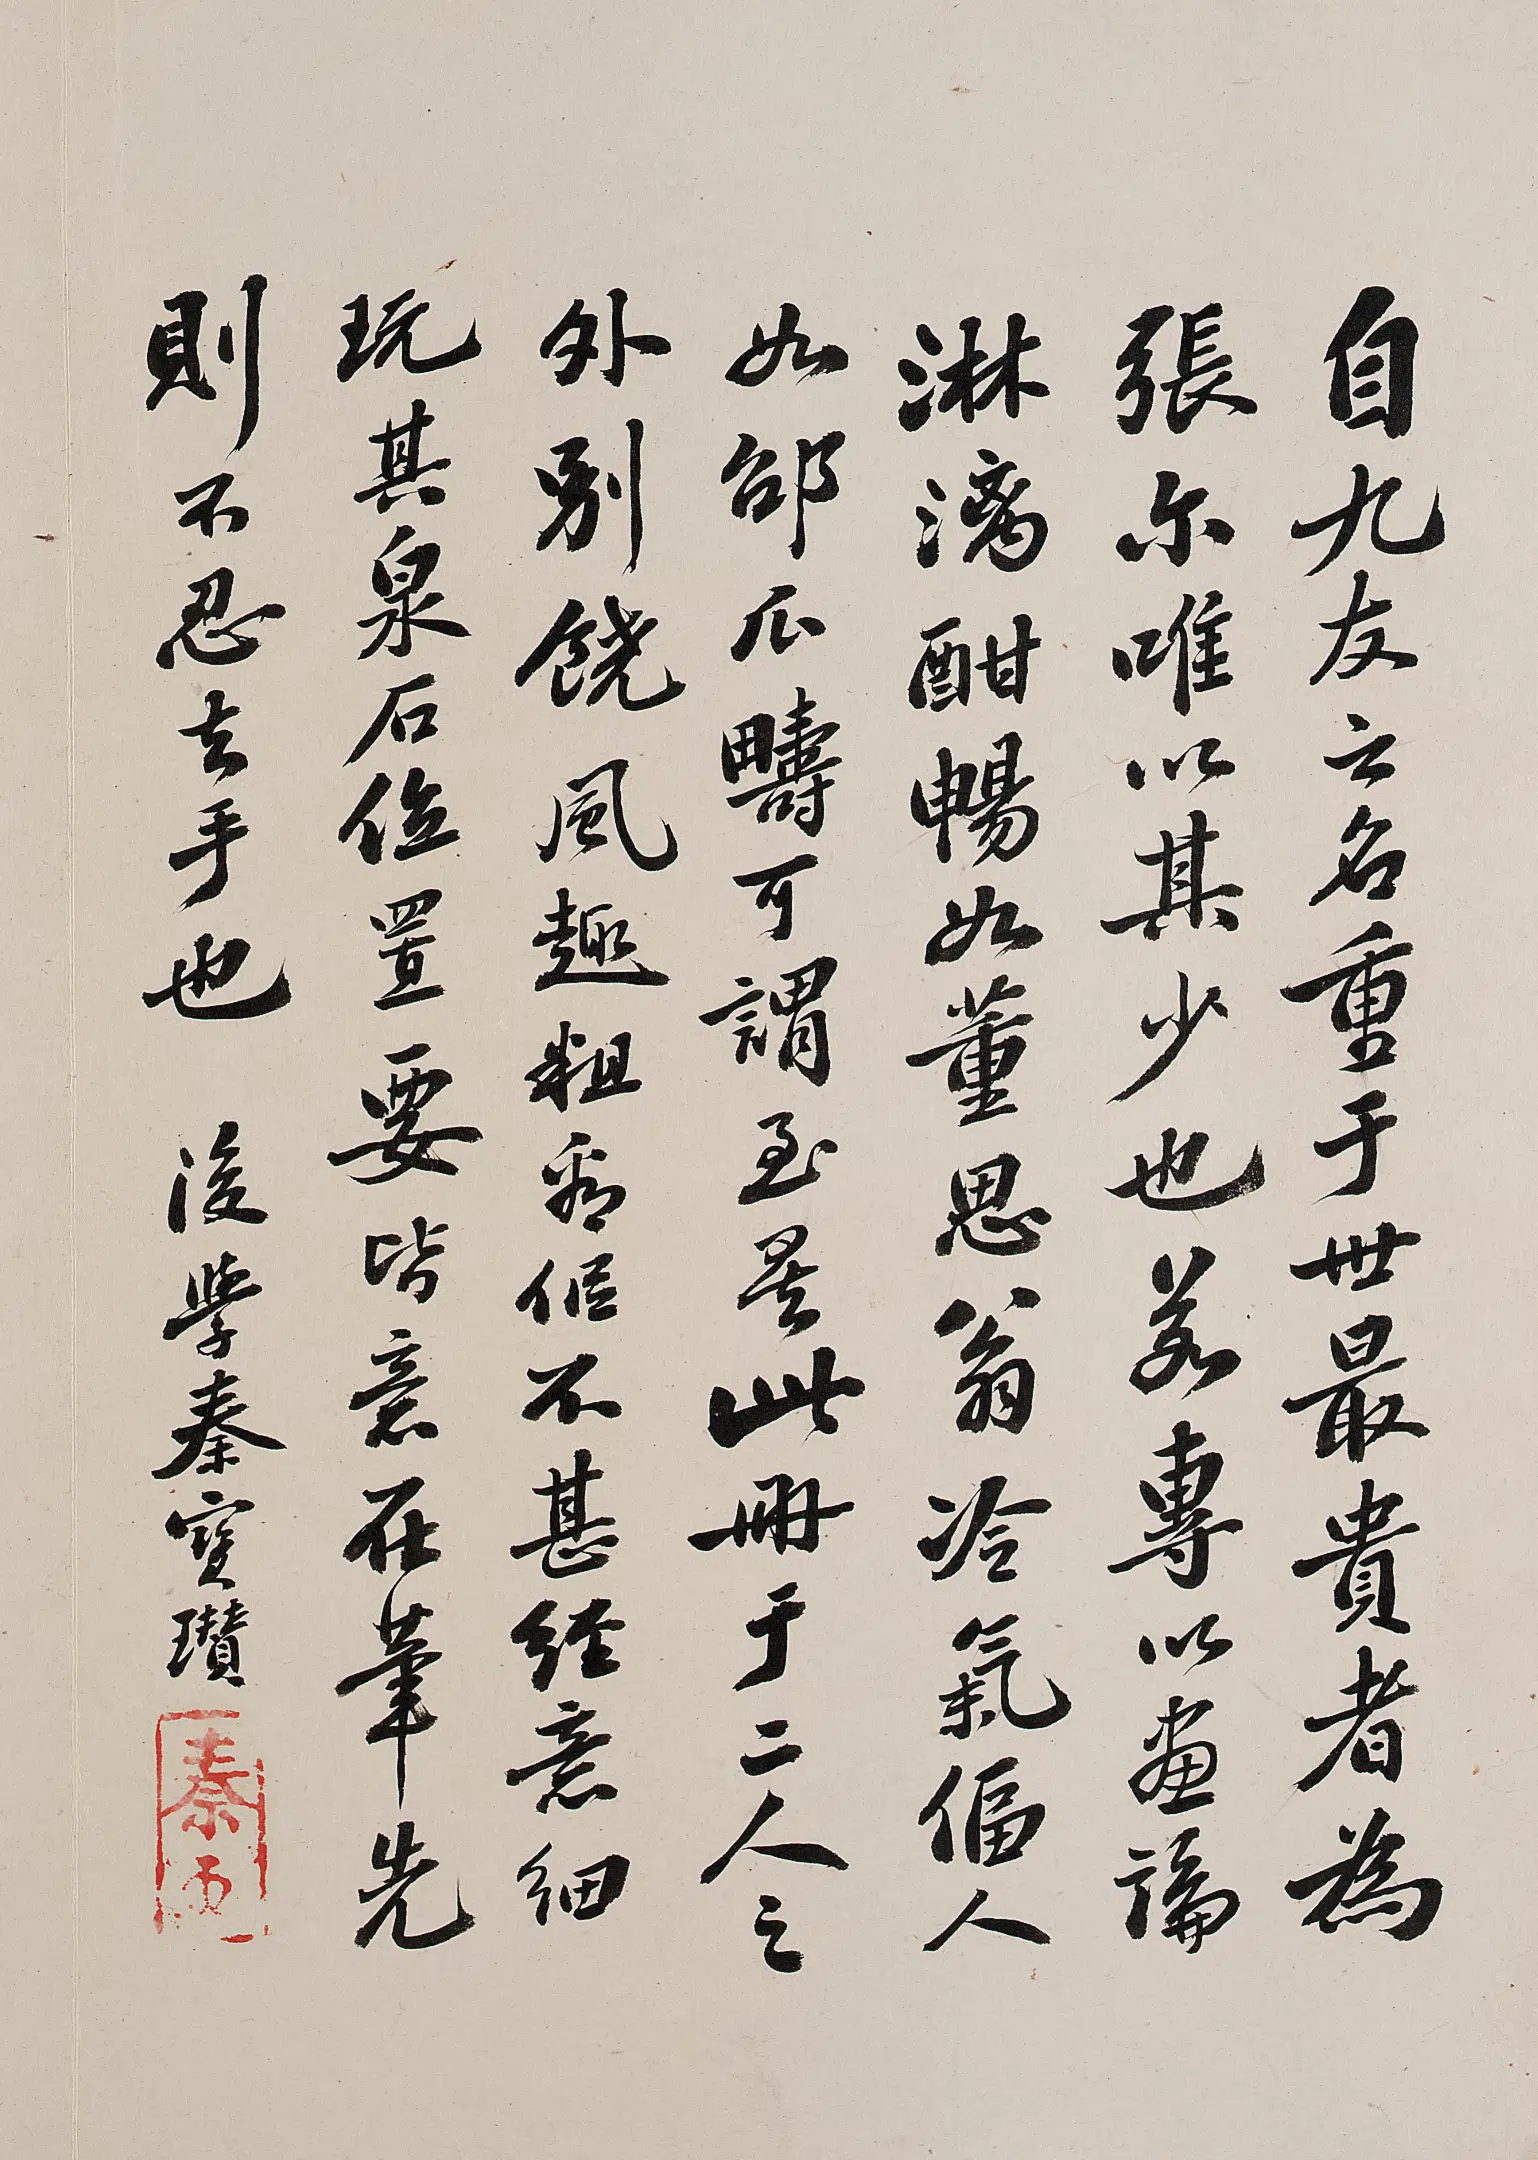 自九友之名重于世最貴者為
張尔唯以其少也若專以畫論
淋漓酣暢如董思翁冷氣偪人
如邵瓜疇可謂至矣此冊于二人之
外別饒風趣粗看似不甚經意細
玩其泉石位置要皆意在筆先
則不忍去手也 後學秦寶瓚
秦